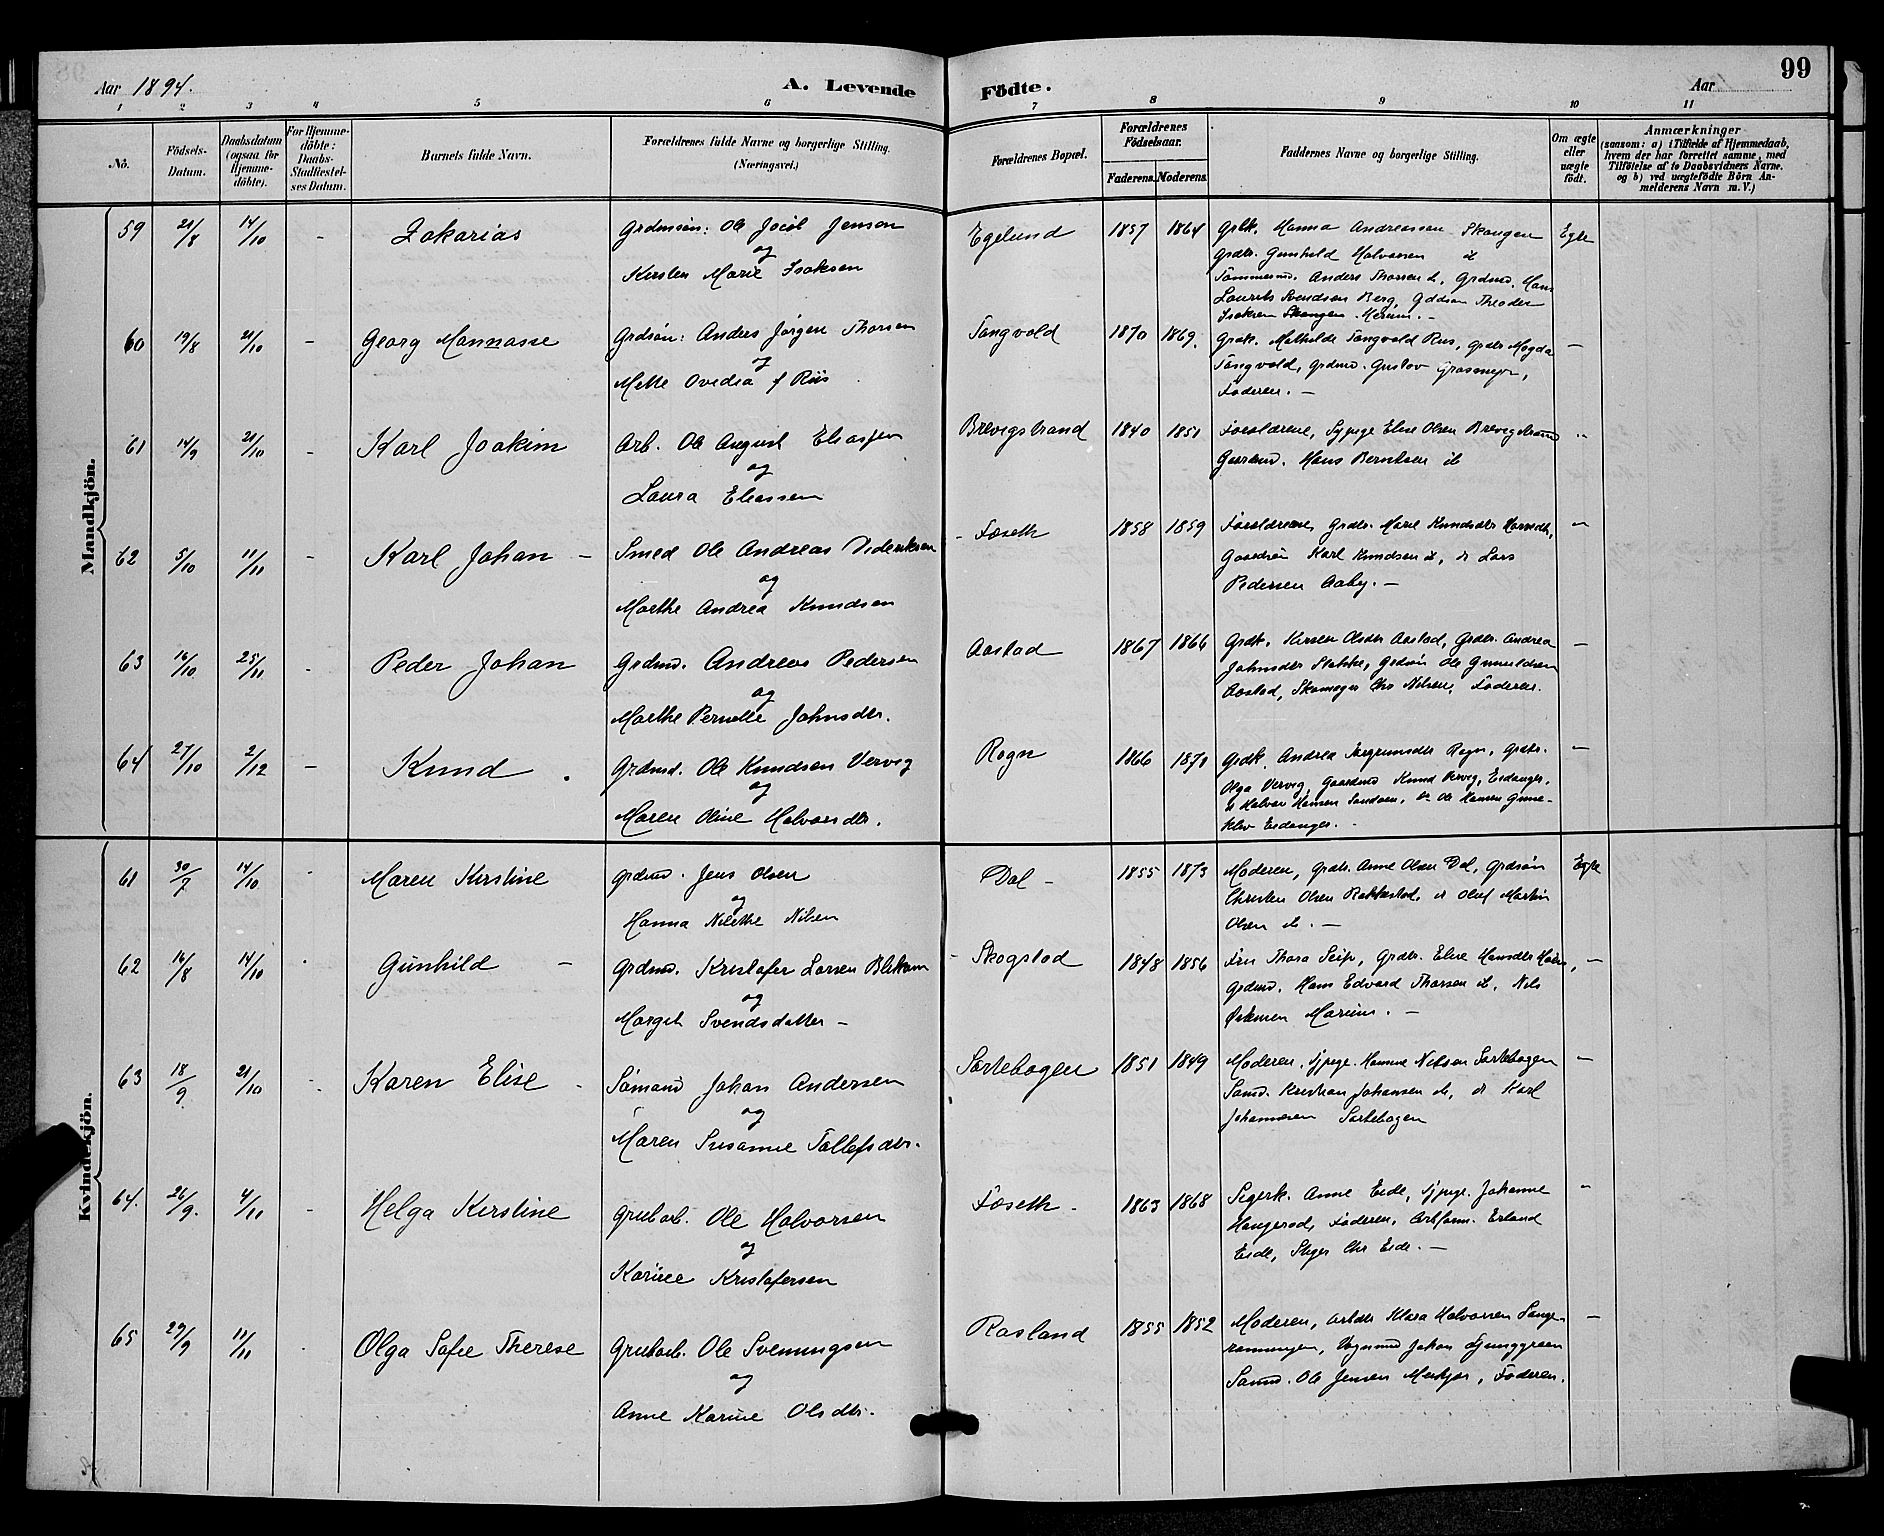 99
Aar 1894.
A. Levende Födte.
Aar
1 2 3 4 5 6 7 8 9 10 11
No.
Födsels-Datum.
Daabsdatum (ogsaa for Hjemme-döbte).
For Hjemme-döbte: Daabs-Stadfæstel-ses Datum.
Barnets fulde Navn.
Forældrenes fulde Navne og borgerlige Stilling. (Næringsvei.)
Forældrenes Bopæl.
Forældrenes Födselsaar.
Faderens. Moderens.
Faddernes Navne og borgerlige Stilling.
Om ægte eller uægte födt.
Anmærkninger
(saasom: a) i Tilfælde af Hjemmedaab, hvem der har forrettet samme, med Tilföielse af to Daabsvidners Navne, og b) ved uægtefödte Börn An-melderens Navn m. V.)
Mandkjön.
59 21/8 14/10 - Zakarias
Grdmsøn: Ole Joiel Jensen
og
Kirsten Marie Isaksen
Egelund 1857 1864
Grdk. Hanna Andreassen Skougen
Grdtr. Gunhild Halvorsen it
Tømmermd. Anders Thorsen it, Grdmd. Hans
Laurits Svendsen Berg, Theodor
Isaksen Skougen.
Egte
60 19/8 21/10 - Georg Mannasse
Grdsøn: Anders Jørgen Thorsen
og
Mette Ovedia f Riis
Tangvold 1870 1869.
Grdk. Mathilde Tangvold Riis, Grdtr Magda
Tangvold, Grdmd. Gustav
Faderen. -
-
61 14/9 21/10 - Karl Joakim
Arb. Ole August Eliassen
og
Laura Eliassen
Brevigstrand 1840 1851
Forældrene, Sypige Elise Olsen Brevigstrand
Gaardmd. Hans Berntsen it
"
62 5/10 11/11 - Karl Johan -
Smed Ole Andreas Dideriksen
og
Marthe Andrea Knudsen
- Foseth 1858 1859
Forældrene, Grdtr. Marie Knudsdtr
Gaardsøn Karl Knudsen it, it Lars
Pedersen Aaby. -
-
63 16/10 25/11 - Peder Johan
Grdmd. Andreas Pedersen
og
Marthe Pernelle Johnsdtr.
Aastad 1867 1866
Grdk. Kirsten Olsdtr Aastad, Grdtr. Andrea
Johnsdtr Stokke, Grdsøn Ole
Aastad, Skomager Chr Nilsen, Faderen.
-
64 27/10 2/12 - Knud
Grdmd. Ole Knudsen Vervig
og
Maren Oline Halvorsdtr.
Rogn 1866 1870
Grdk. Andrea Rogn, Grdtr.
Olga Vervig, Gaardmd Knud Vervig, Eidanger,
it Halvor Hansen Sandøen, it Ole Hansen Gunne-
klev Eidanger. -
-
Kvindekjön.
61 30/7 14/10 - Maren Kirstine
Grdmd. Jens Olsen
og
Hanna Nilethe Nilsen
Dal - 1855 1873
Moderen, Grdtr. Anne Olsen Dal, Grdsøn
Christen Olsen Rakkestad, it Oluf Martin
Olsen it. -
Egte
62 16/8 14/10 - Gunhild -
Grdmd. Kristofer Larsen Blekum
og
Margit Svendsdatter -
- Skogstad 1848 1856
Fru Thora Seip, Grdtr. Elise Hansdtr
Grdmd. Hans Edvard Thorsen it, Nils
-
63 18/9 21/10 - Karen Elise -
Sømand Johan Andersen
og
Maren Susanne Tollefsdtr.
Sortebogen 1851 1849
Moderen, Sypige. Hanne Nilsen Sortebogen
Sømd. Kristian Johansen it, it Karl
Johannesen Sortebogen
-
64. 26/9. 4/11 - Helga Kirstine
Grubarb. Ole Halvorsen
og
Karine Kristofersen
Foseth - 1863 1868
Anne Eide, Sypige. Johanne
Haugerød, Faderen, Erland
Eide, Chr Eide. -
-
65 29/9 11/11 - Olga Sofie Therese
Grubarb. Ole Svenningsen
og
Anne Karine Olsdtr.
Rosland 1855 1852
Moderen, Arbdtr Klara Halvorsen Lange-
Johan Ljunggreen
Sømd. Ole Jensen Faderen.
-